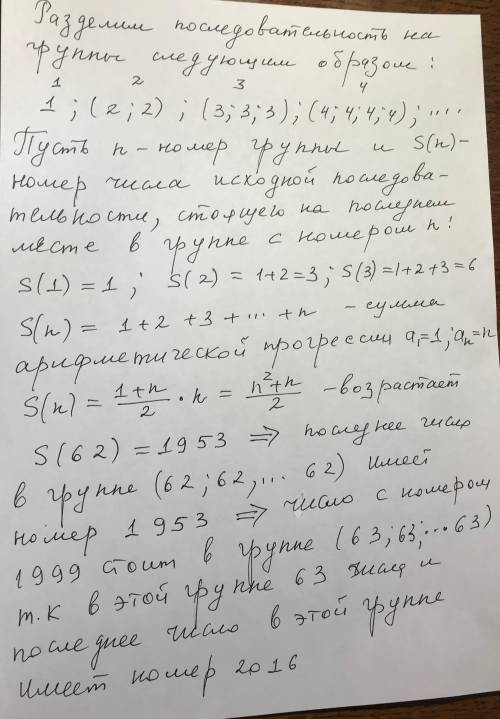 Разделим последовательность на
группы следующим образом:
1 2 3 4
1 ; (2 ; 2) ; (3; 3; 3) ; (4; 4; 4; 4) ; ....
Пусть n – номер группы и S(n) –
номер числа исходной последова-
тельности, стоящего на последнем
месте в группе с номером n:
S(1) = 1 ; S(2) = 1+2 = 3 ; S(3) = 1+2+3 = 6
S(n) = 1 + 2 + 3 + ... + n – сумма
арифметической прогрессии a₁=1 ; aₙ=n
S(n) = (1+n)/2 · n = (n²+n)/2 – возрастает
S(62) = 1953 ⇒ последнее число
в группе (62 ; 62, ... 62) имеет
номер 1953 ⇒ число с номером
1999 стоит в группе (63; 63; ... 63)
т.к в этой группе 63 числа и
последнее число в этой группе
имеет номер 2016